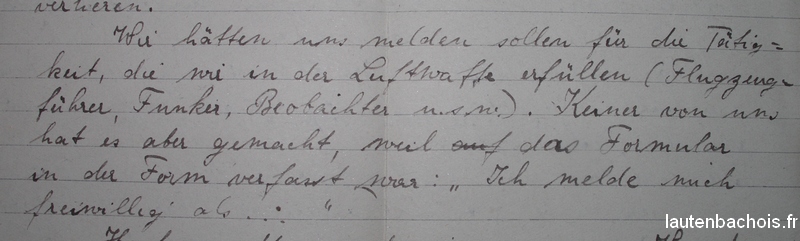 verlieren.
Wir hätten uns melden sollen für die Tätig=
keit, die wir in der Luftwaffe erfüllen (Flugzeug-
führer, Funker, Beobachter u.s.w.). Keiner von uns
hat es aber gemacht, weil auf das Formular
in der Form verfasst war: „ Ich melde mich
freiwillig als ..: "
lautenbachois.fr